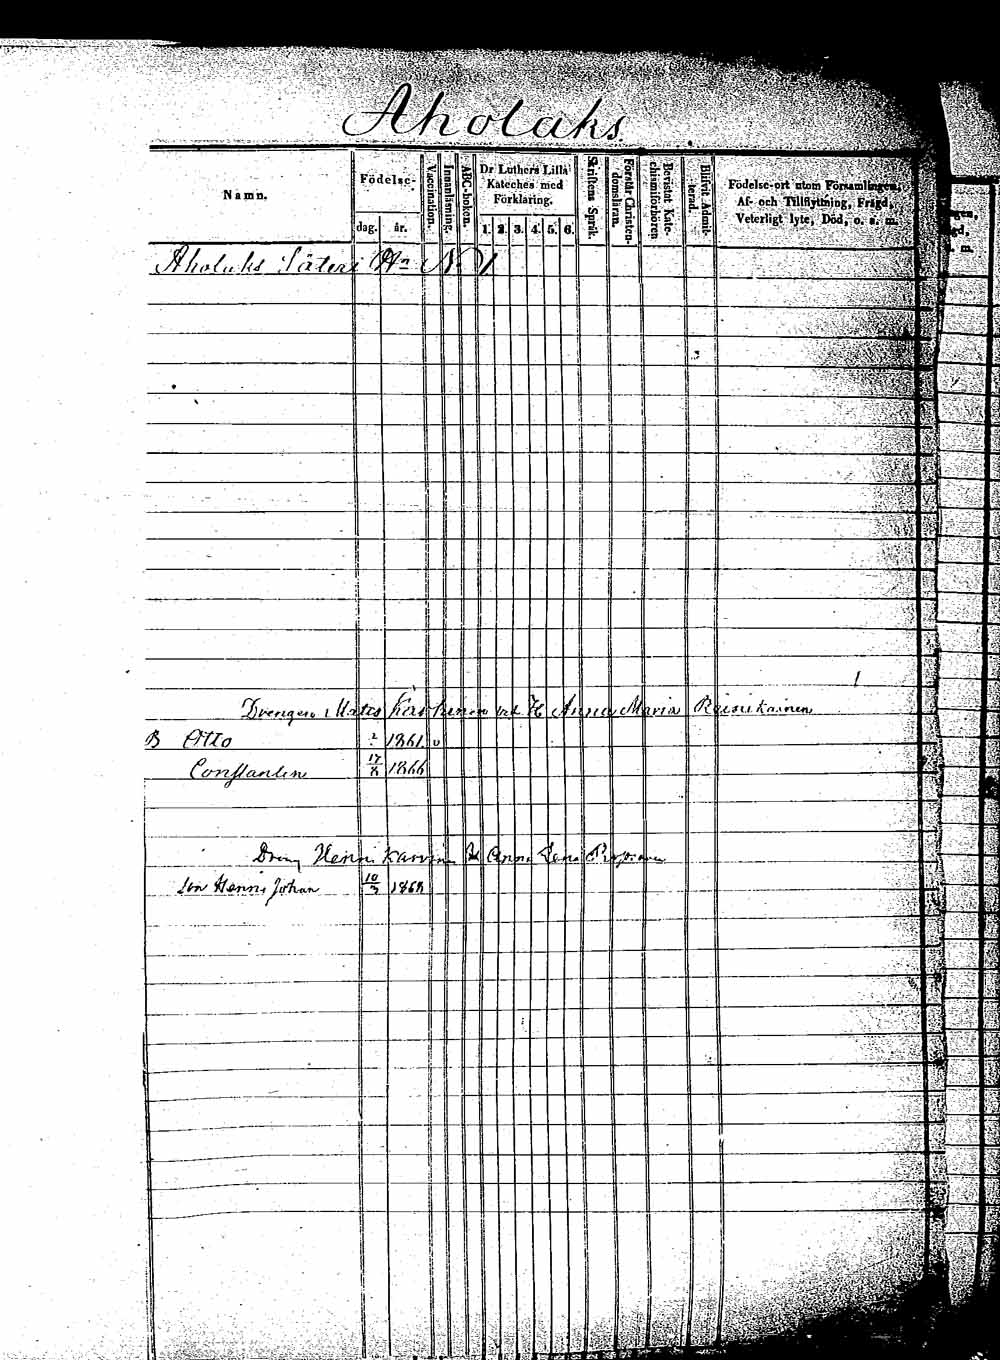 Aholaks
Namn.
Födelse-
dag. år.
Vaccination.
Innanläsning.
ABC-boken.
Dr Luthers Lilla Kateches med Förklaring.
1. 2. 3. 4. 5. 6.
Skriftens Språk.
Förstår Christendomsläran.
Bevistat Katechismiförhören
Blifvit Admitterad.
Födelse-ort utom Församlingen,
Af- och Tillflyttning, Frägd,
Veterligt lyte, Död, o. s. m.
Aholaks Säteri N 1
Drengen Matts Anna Maria
B Otto 1861
Constantin 17/8 1866
Henric Anna Lena
Son Henric Johan 10/3